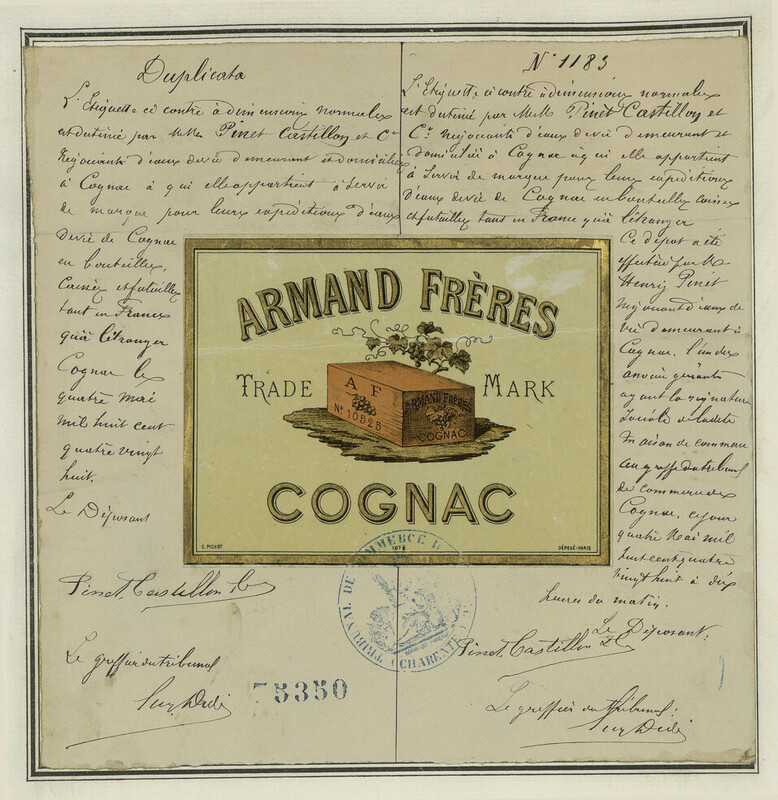 Duplicata
L'Etiquette ci contre à dimensions normales
est destiné par MMrs Pinet Castillon et Cie
Négociants d'eaux de vie demeurant et domiciliés
à Cognac à qui elle appartient à servir
de marque pour leurs expéditions d'eaux
de vie de Cognac
en bouteilles,
Caisses et futailles
tant en France
qu'à l'étranger
Cognac le
quatre Mai
mil huit cent
quatre vingt
huit.
Le Déposant
Pinet Castillon & Co
Le greffier du tribunal
75350
N° 1183
L'Etiquette ci contre à dimensions normales
est destiné par MM Pinet Castillon et
Cie Négociants d'eaux de vie demeurant et
domiciliés à Cognac à qui elle appartient
à servir de marque pour leurs expéditions
d'eaux de vie de Cognac en bouteilles caisses
et futailles tant en France qu'à l'étranger
Ce dépot a été
effectué par M
Henry Pinet
négociant d'eaux de
vie demeurant à
Cognac, l'un des
associés gérants
ayant la signature
sociale de ladite
maison de commerce
au greffe du tribunal
de commerce de
Cognac, ce jour
quatre Mai mil
huit cent quatre
vingt huit à dix
heures du matin.
Le Déposant:
Pinet Castillon & Co
Le greffier du tribunal:
ARMAND FRÈRES
TRADE MARK
A F
No 10525
ARMAND FRÈRES
COGNAC
COGNAC
E. PICHOT
DÉPOSÉ-PARIS
TRIBUNAL DE COMMERCE DE
(CHARENTE)